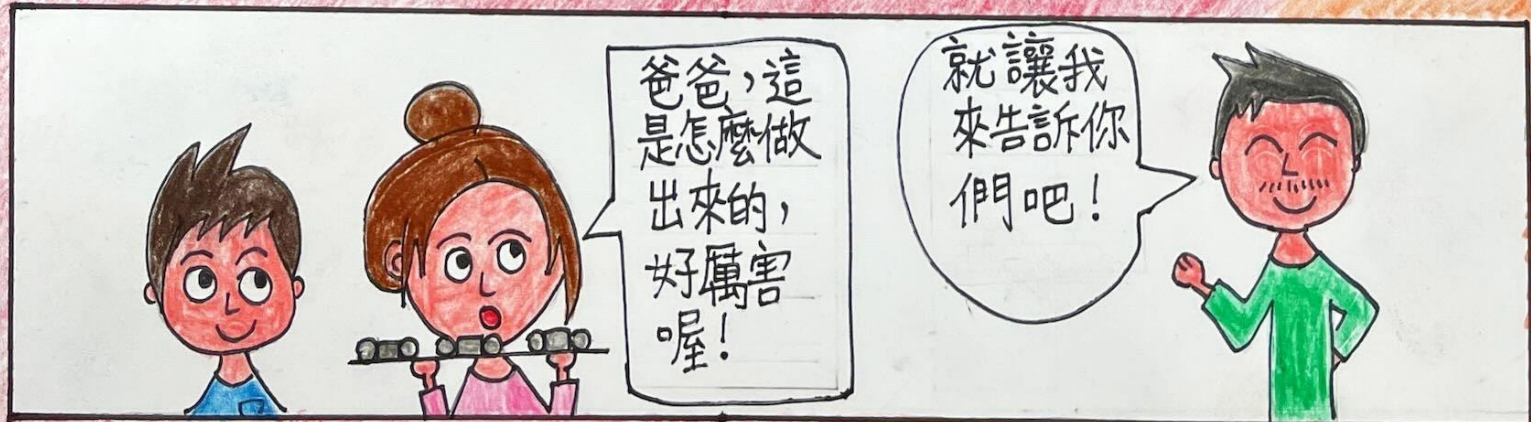 爸爸，這
是怎麼做
出來的，
好厲害
喔！
就讓我
來告訴你
們吧！